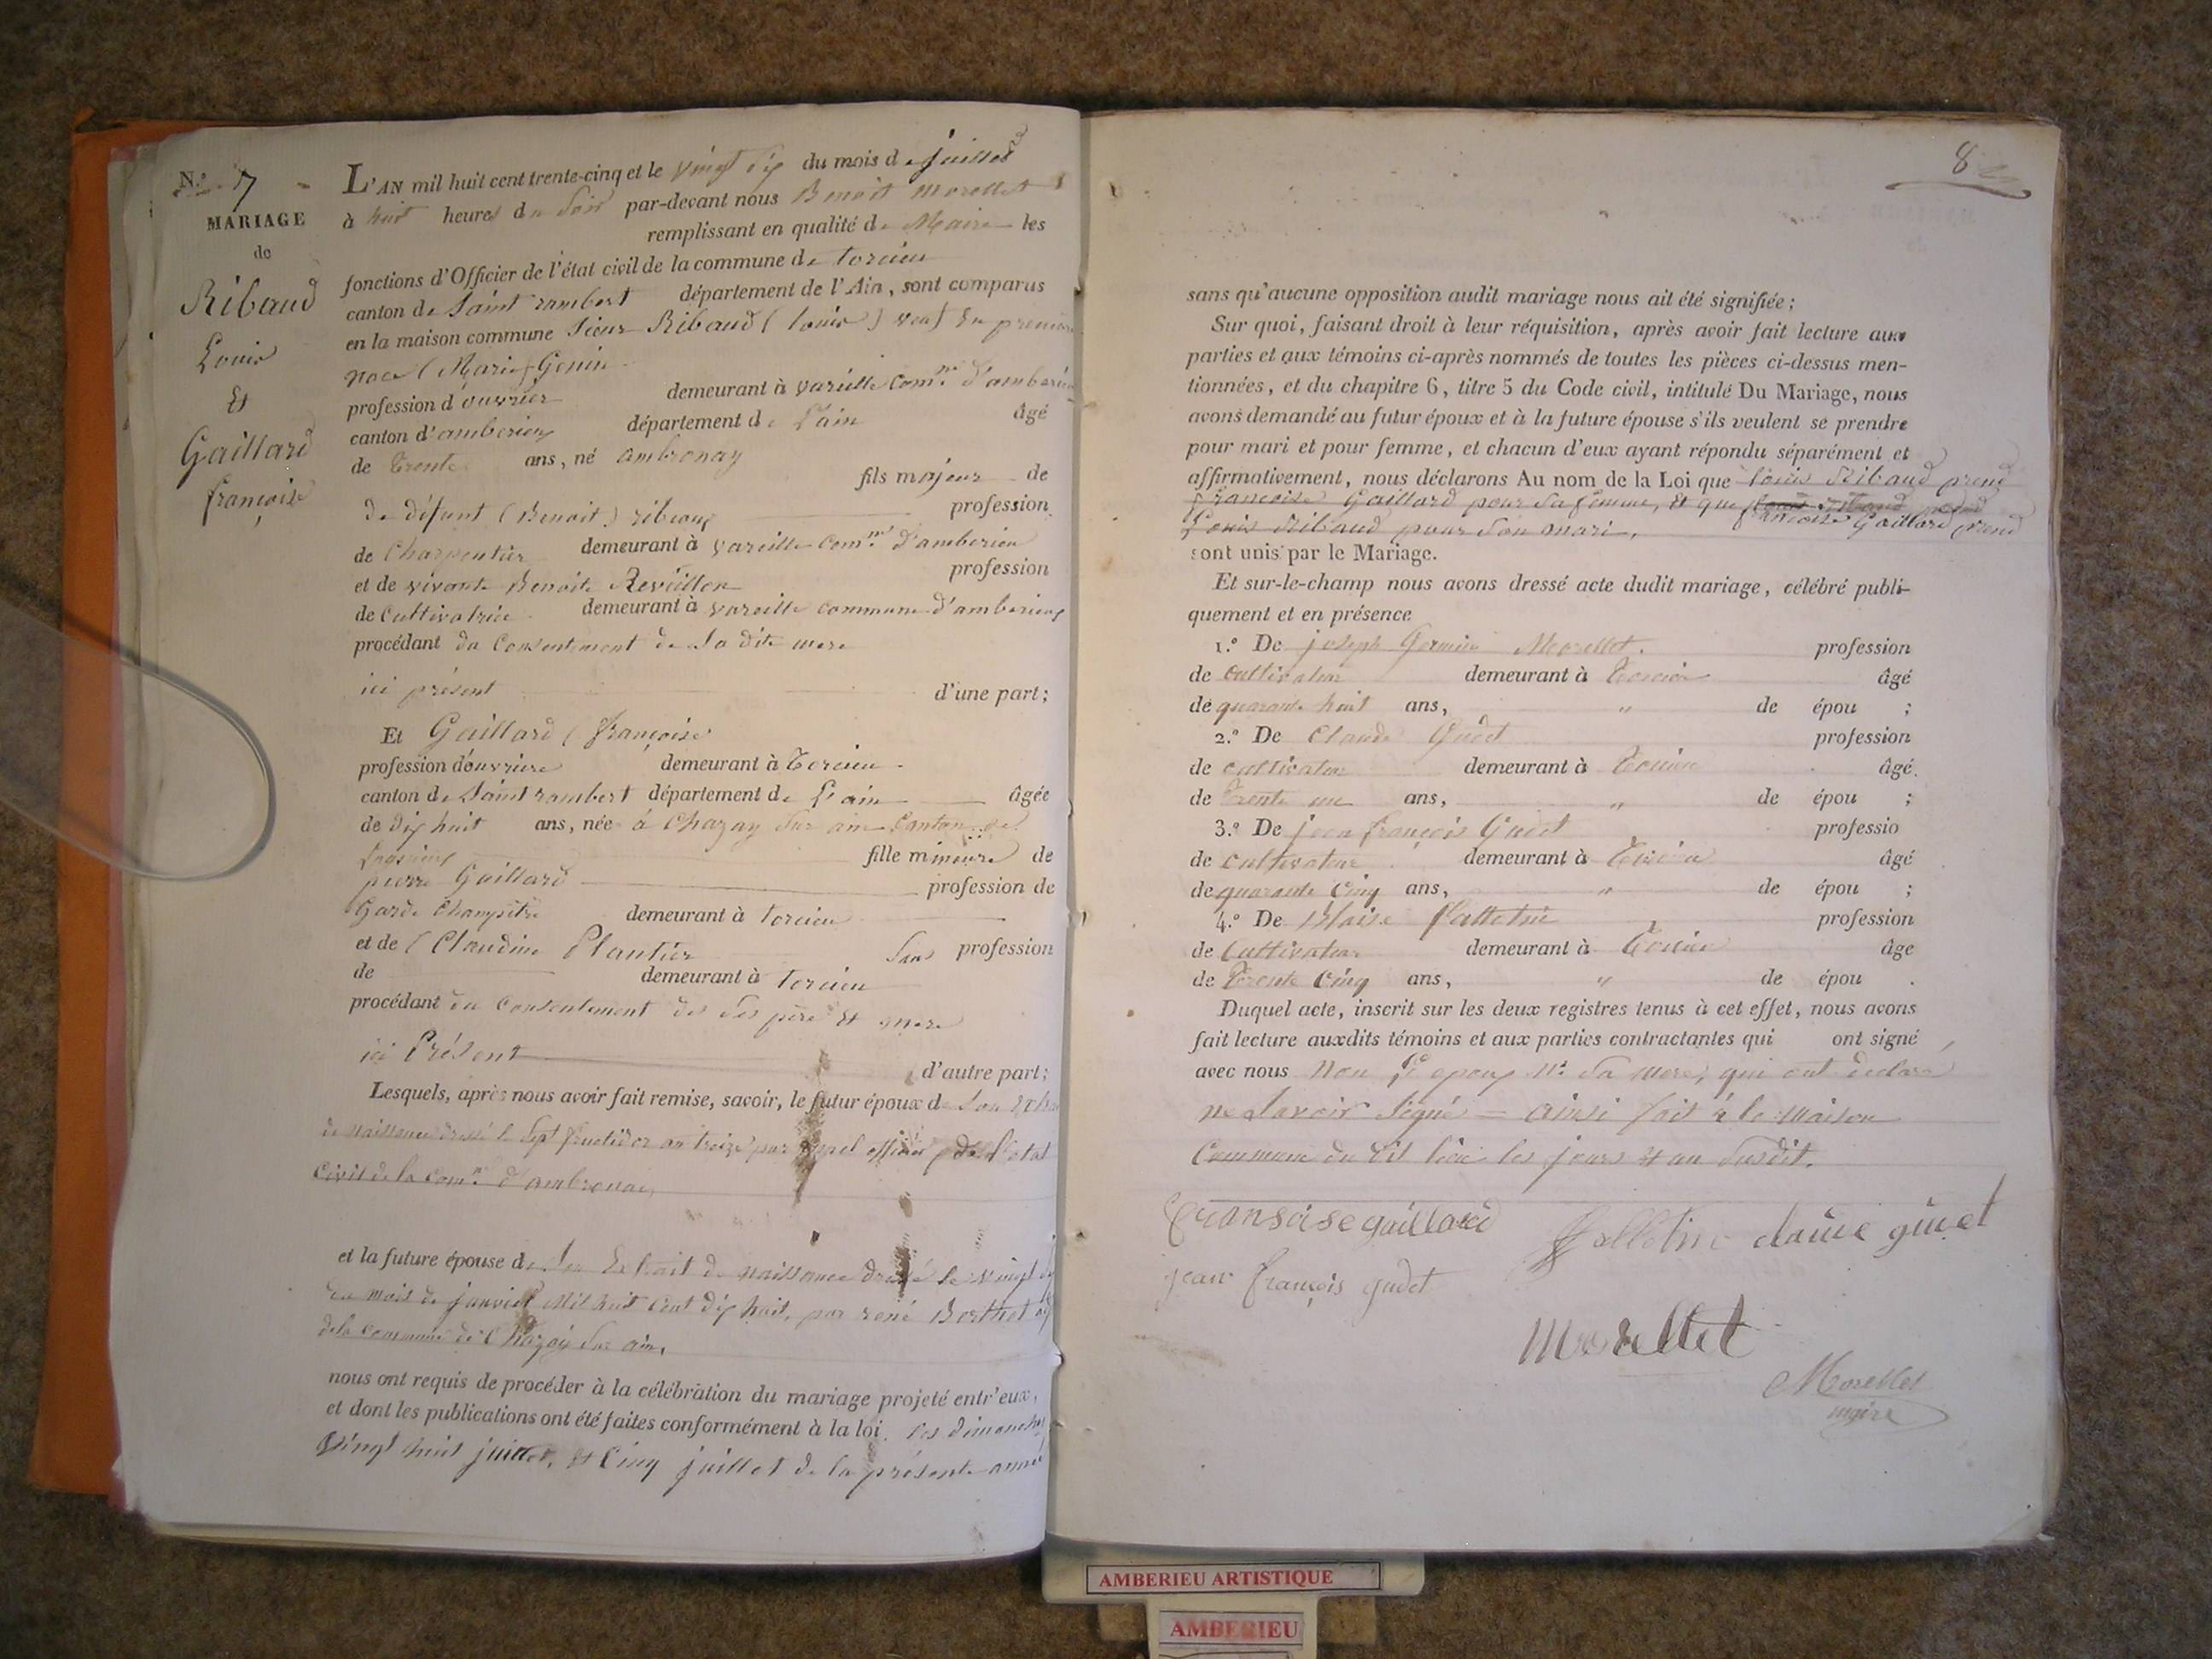 N.º 7
MARIAGE
de
Ribaud
Louis
Et
Gaillard
françoise
L'AN mil huit cent trente-cinq et le vingt six du mois de juillet
à huit heures du soir par-devant nous Benoit Morellet
remplissant en qualité de Maire les
fonctions d'Officier de l'état civil de la commune de torcieu
canton de Saint rambert département de l'Ain, sont comparus
en la maison commune Sieur Ribaud (louis) veuf En première
noce (Marie) Genin
profession d'ouvrier demeurant à vareille com.ne d'amberieu
canton d'amberieux département de L'ain âgé
de Trente ans, né ambronay
fils majeur de
de défunt (Benoit) ribeaux profession
de Charpentier demeurant à vareille com.ne d'amberieu
et de vivante Benoite Reveillon profession
de Cultivatrice demeurant à vareille commune d'amberieux
procédant du Consentement de Sa dite mere
ici présent d'une part;
Et Gaillard (françoise
profession d'ouvriere demeurant à Torcieu
canton de Saint rambert département de L'ain âgée
de dix huit ans, née à Chazay Sur ain Canton de
Lagnieux fille mineure de
pierre Gaillard profession de
Garde Champêtre demeurant à torcieu
et de (Claudine Plantier Sans profession
de demeurant à torcieu
procédant du consentement des Ses père Et mere
ici Présent d'autre part;
Lesquels, après nous avoir fait remise, savoir, le futur époux de Son
de naissance dressé le Sept fructidor an treize par officier de l'etat
Civil de la Com.ne d'ambronay
et la future épouse de Son Extrait de naissance dressé le vingt
du mois de janvier Mil huit Cent dix huit, par rené Berthet
de la commune de Chazay Sur ain,
nous ont requis de procéder à la célébration du mariage projeté entr'eux,
et dont les publications ont été faites conformément à la loi. les dimanches
Vingt huit juillet, et Cinq juillet de la présente année
8
sans qu'aucune opposition audit mariage nous ait été signifiée;
Sur quoi, faisant droit à leur réquisition, après avoir fait lecture aux
parties et aux témoins ci-après nommés de toutes les pièces ci-dessus men-
tionnées, et du chapitre 6, titre 5 du Code civil, intitulé Du Mariage, nous
avons demandé au futur époux et à la future épouse s'ils veulent se prendre
pour mari et pour femme, et chacun d'eux ayant répondu séparément et
affirmativement, nous déclarons Au nom de la Loi que louis Ribaud prend
françoise Gaillard pour Sa femme, et que françoise Gaillard prend
Louis Ribaud pour Son mari,
sont unis par le Mariage.
Et sur-le-champ nous avons dressé acte dudit mariage, célébré publi-
quement et en présence
1.º De joseph Germain Morellet. profession
de Cultivateur demeurant à Torcieu âgé
de quarante huit ans, " de épou ;
2.º De Claude Gudet profession
de cultivateur demeurant à Torcieu âgé
de Trente un ans, " de épou ;
3.º De jean françois Gudet professio
de cultivateur demeurant à Torcieu âgé
de quarante Cinq ans, " de épou ;
4.º De Blaise profession
de Cultivateur demeurant à Torcieu âge
de Trente Cinq ans, " de épou .
Duquel acte, inscrit sur les deux registres tenus à cet effet, nous avons
fait lecture auxdits témoins et aux parties contractantes qui ont signé
avec nous Non L'epoux Ni Sa mere, qui ont declaré
ne Savoir Signé = ainsi fait à la Maison
Commune du dit lieu les jours et an Susdit.
fransoise gaillard claude gudet
jean françois gudet
Morellet
Morellet
maire
AMBERIEU ARTISTIQUE
AMBERIEU